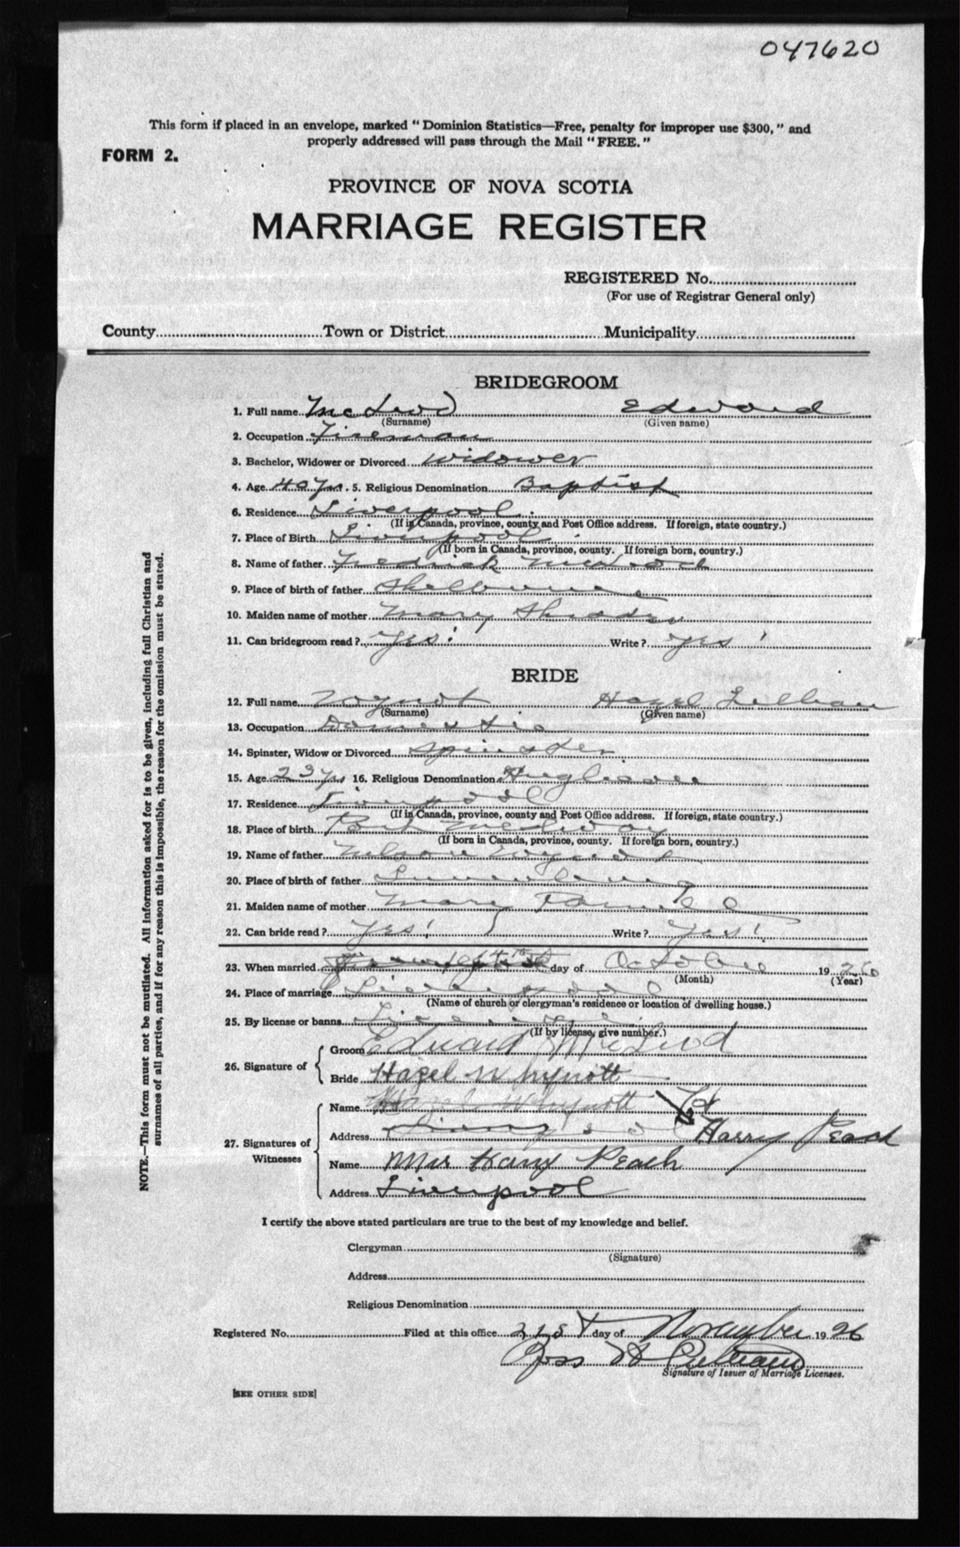 047620
This form if placed in an envelope, marked "Dominion Statistics—Free, penalty for improper use $300," and
properly addressed will pass through the Mail "FREE."
FORM 2.
PROVINCE OF NOVA SCOTIA
MARRIAGE REGISTER
REGISTERED No.
(For use of Registrar General only)
County Town or District Municipality
BRIDEGROOM
1. Full name McLeod Edward
(Surname) (Given name)
2. Occupation Fireman
3. Bachelor, Widower or Divorced Widower
4. Age 40 yrs. 5. Religious Denomination Baptist
6. Residence Liverpool
(If in Canada, province, county and Post Office address. If foreign, state country.)
7. Place of Birth Liverpool
(If born in Canada, province, county. If foreign born, country.)
8. Name of father Fredrick McLeod
9. Place of birth of father Shelburne
10. Maiden name of mother Mary
11. Can bridegroom read? Yes! Write? Yes!
BRIDE
12. Full name Wynot Hazel Lillian
(Surname) (Given name)
13. Occupation Domestic
14. Spinster, Widow or Divorced Spinster
15. Age 23 yrs 16. Religious Denomination
17. Residence Liverpool
(If in Canada, province, county and Post Office address. If foreign, state country.)
18. Place of birth Port Medway
(If born in Canada, province, county. If foreign born, country.)
19. Name of father Nelson Wynot
20. Place of birth of father Lunenburg
21. Maiden name of mother Mary
22. Can bride read? Yes! Write? Yes!
23. When married day of October 1926
(Month) (Year)
24. Place of marriage Liverpool
(Name of church or clergyman's residence or location of dwelling house.)
25. By license or banns License
(If by license, give number.)
26. Signature of
Groom Edward McLeod
Bride Hazel Whynott
27. Signatures of Witnesses
Name Hazel Whynott
Address Liverpool Harry Peach
Name Mrs Harry Peach
Address Liverpool
I certify the above stated particulars are true to the best of my knowledge and belief.
Clergyman
(Signature)
Address
Religious Denomination
Registered No. Filed at this office 21st day of November 1926
Signature of Issuer of Marriage Licenses.
[SEE OTHER SIDE]
NOTE.—This form must not be mutilated. All information asked for is to be given, including full Christian and
surnames of all parties, and if for any reason this is impossible, the reason for the omission must be stated.